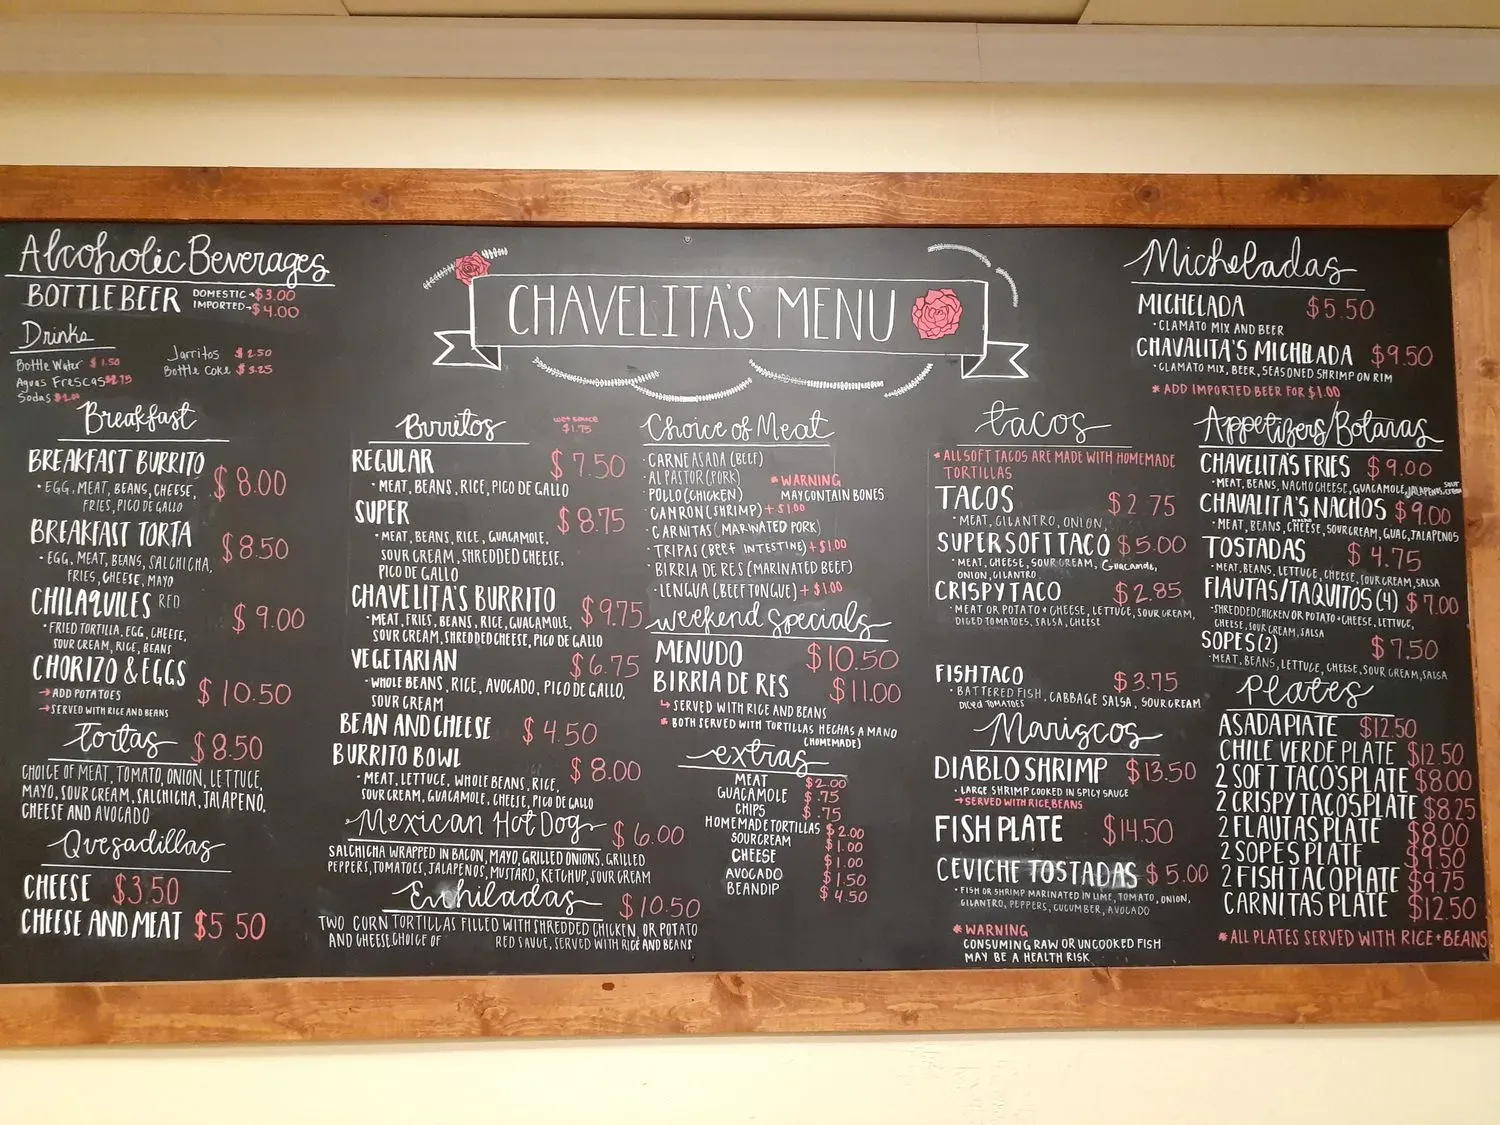 CHAVELITA'S MENU
Alcoholic Beverages
BOTTLE BEER DOMESTIC → $3.00
IMPORTED → $4.00
Drinks
Bottle Water $1.50
Aguas Frescas $2.75
Sodas $2.00
Jarritos $2.50
Bottle Coke $3.25
Breakfast
BREAKFAST BURRITO $8.00
• EGG, MEAT, BEANS, CHEESE,
FRIES, PICO DE GALLO
BREAKFAST TORTA $8.50
• EGG, MEAT, BEANS, SALCHICHA,
FRIES, CHEESE, MAYO
CHILAQUILES RED $9.00
• FRIED TORTILLA, EGG, CHEESE,
SOUR CREAM, RICE, BEANS
CHORIZO & EGGS $10.50
→ ADD POTATOES
→ SERVED WITH RICE AND BEANS
Tortas $8.50
CHOICE OF MEAT, TOMATO, ONION, LETTUCE,
MAYO, SOUR CREAM, SALCHICHA, JALAPENO,
CHEESE AND AVOCADO
Quesadillas
CHEESE $3.50
CHEESE AND MEAT $5 50
Burritos
wet sauce
$1.75
REGULAR $7.50
• MEAT, BEANS, RICE, PICO DE GALLO
SUPER $8.75
• MEAT, BEANS, RICE, GUACAMOLE,
SOUR CREAM, SHREDDED CHEESE,
PICO DE GALLO
CHAVELITA'S BURRITO $9.75
• MEAT, FRIES, BEANS, RICE, GUACAMOLE,
SOUR CREAM, SHREDDED CHEESE, PICO DE GALLO
VEGETARIAN $6.75
• WHOLE BEANS, RICE, AVOCADO, PICO DE GALLO,
SOUR CREAM
BEAN AND CHEESE $4.50
BURRITO BOWL $8.00
• MEAT, LETTUCE, WHOLE BEANS, RICE,
SOUR CREAM, GUACAMOLE, CHEESE, PICO DE GALLO
Mexican Hot Dog $6.00
SALCHICHA WRAPPED IN BACON, MAYO, GRILLED ONIONS, GRILLED
PEPPERS, TOMATOES, JALAPENOS, MUSTARD, KETCHUP, SOUR CREAM
Enchiladas $10.50
TWO CORN TORTILLAS FILLED WITH SHREDDED CHICKEN, OR POTATO
AND CHEESE CHOICE OF RED SAUCE, SERVED WITH RICE AND BEANS
Choice of Meat
• CARNE ASADA (BEEF)
• AL PASTOR (PORK)
• POLLO (CHICKEN)
• CAMRON (SHRIMP) + $1.00
• CARNITAS (MARINATED PORK)
• TRIPAS (BEEF INTESTINE) + $1.00
• BIRRIA DE RES (MARINATED BEEF)
• LENGUA (BEEF TONGUE) + $1.00
* WARNING
MAY CONTAIN BONES
Weekend Specials
MENUDO $10.50
BIRRIA DE RES $11.00
↳ SERVED WITH RICE AND BEANS
* BOTH SERVED WITH TORTILLAS HECHAS A MANO
(HOMEMADE)
extras
MEAT $2.00
GUACAMOLE $.75
CHIPS $.75
HOMEMADE TORTILLAS $2.00
SOUR CREAM $1.00
CHEESE $1.00
AVOCADO $1.50
BEAN DIP $4.50
tacos
* ALL SOFT TACOS ARE MADE WITH HOMEMADE
TORTILLAS
TACOS $2 75
• MEAT, CILANTRO, ONION,
SUPER SOFT TACO $5.00
• MEAT, CHEESE, SOUR CREAM, Guacamole,
ONION, CILANTRO
CRISPY TACO $2.85
• MEAT OR POTATO + CHEESE, LETTUCE, SOUR CREAM,
DICED TOMATOES, SALSA, CHEESE
FISH TACO $3.75
• BATTERED FISH, CABBAGE SALSA, SOUR CREAM
DICED TOMATOES
Mariscos
DIABLO SHRIMP $13.50
• LARGE SHRIMP COOKED IN SPICY SAUCE
→ SERVED WITH RICE, BEANS
FISH PLATE $14.50
CEVICHE TOSTADAS $5.00
• FISH OR SHRIMP MARINATED IN LIME, TOMATO, ONION,
CILANTRO, PEPPERS, CUCUMBER, AVOCADO
* WARNING
CONSUMING RAW OR UNCOOKED FISH
MAY BE A HEALTH RISK
Micheladas
MICHELADA $5.50
• CLAMATO MIX AND BEER
CHAVALITA'S MICHELADA $9.50
• CLAMATO MIX, BEER, SEASONED SHRIMP ON RIM
* ADD IMPORTED BEER FOR $1.00
Appetizers/Botanas
CHAVELITA'S FRIES $9.00
• MEAT, BEANS, NACHO CHEESE, GUACAMOLE, JALAPENOS, SOUR CREAM
CHAVALITA'S NACHOS $9.00
• MEAT, BEANS, NACHO CHEESE, SOUR CREAM, GUAC, JALAPENOS
TOSTADAS $4.75
• MEAT, BEANS, LETTUCE, CHEESE, SOUR CREAM, SALSA
FLAUTAS/TAQUITOS (4) $7.00
• SHREDDED CHICKEN OR POTATO + CHEESE, LETTUCE,
CHEESE, SOUR CREAM, SALSA
SOPES (2) $7.50
• MEAT, BEANS, LETTUCE, CHEESE, SOUR CREAM, SALSA
Plates
ASADA PLATE $12.50
CHILE VERDE PLATE $12.50
2 SOFT TACO'S PLATE $8.00
2 CRISPY TACO'S PLATE $8.25
2 FLAUTAS PLATE $8.00
2 SOPES PLATE $9.50
2 FISH TACO PLATE $9.75
CARNITAS PLATE $12.50
* ALL PLATES SERVED WITH RICE + BEANS